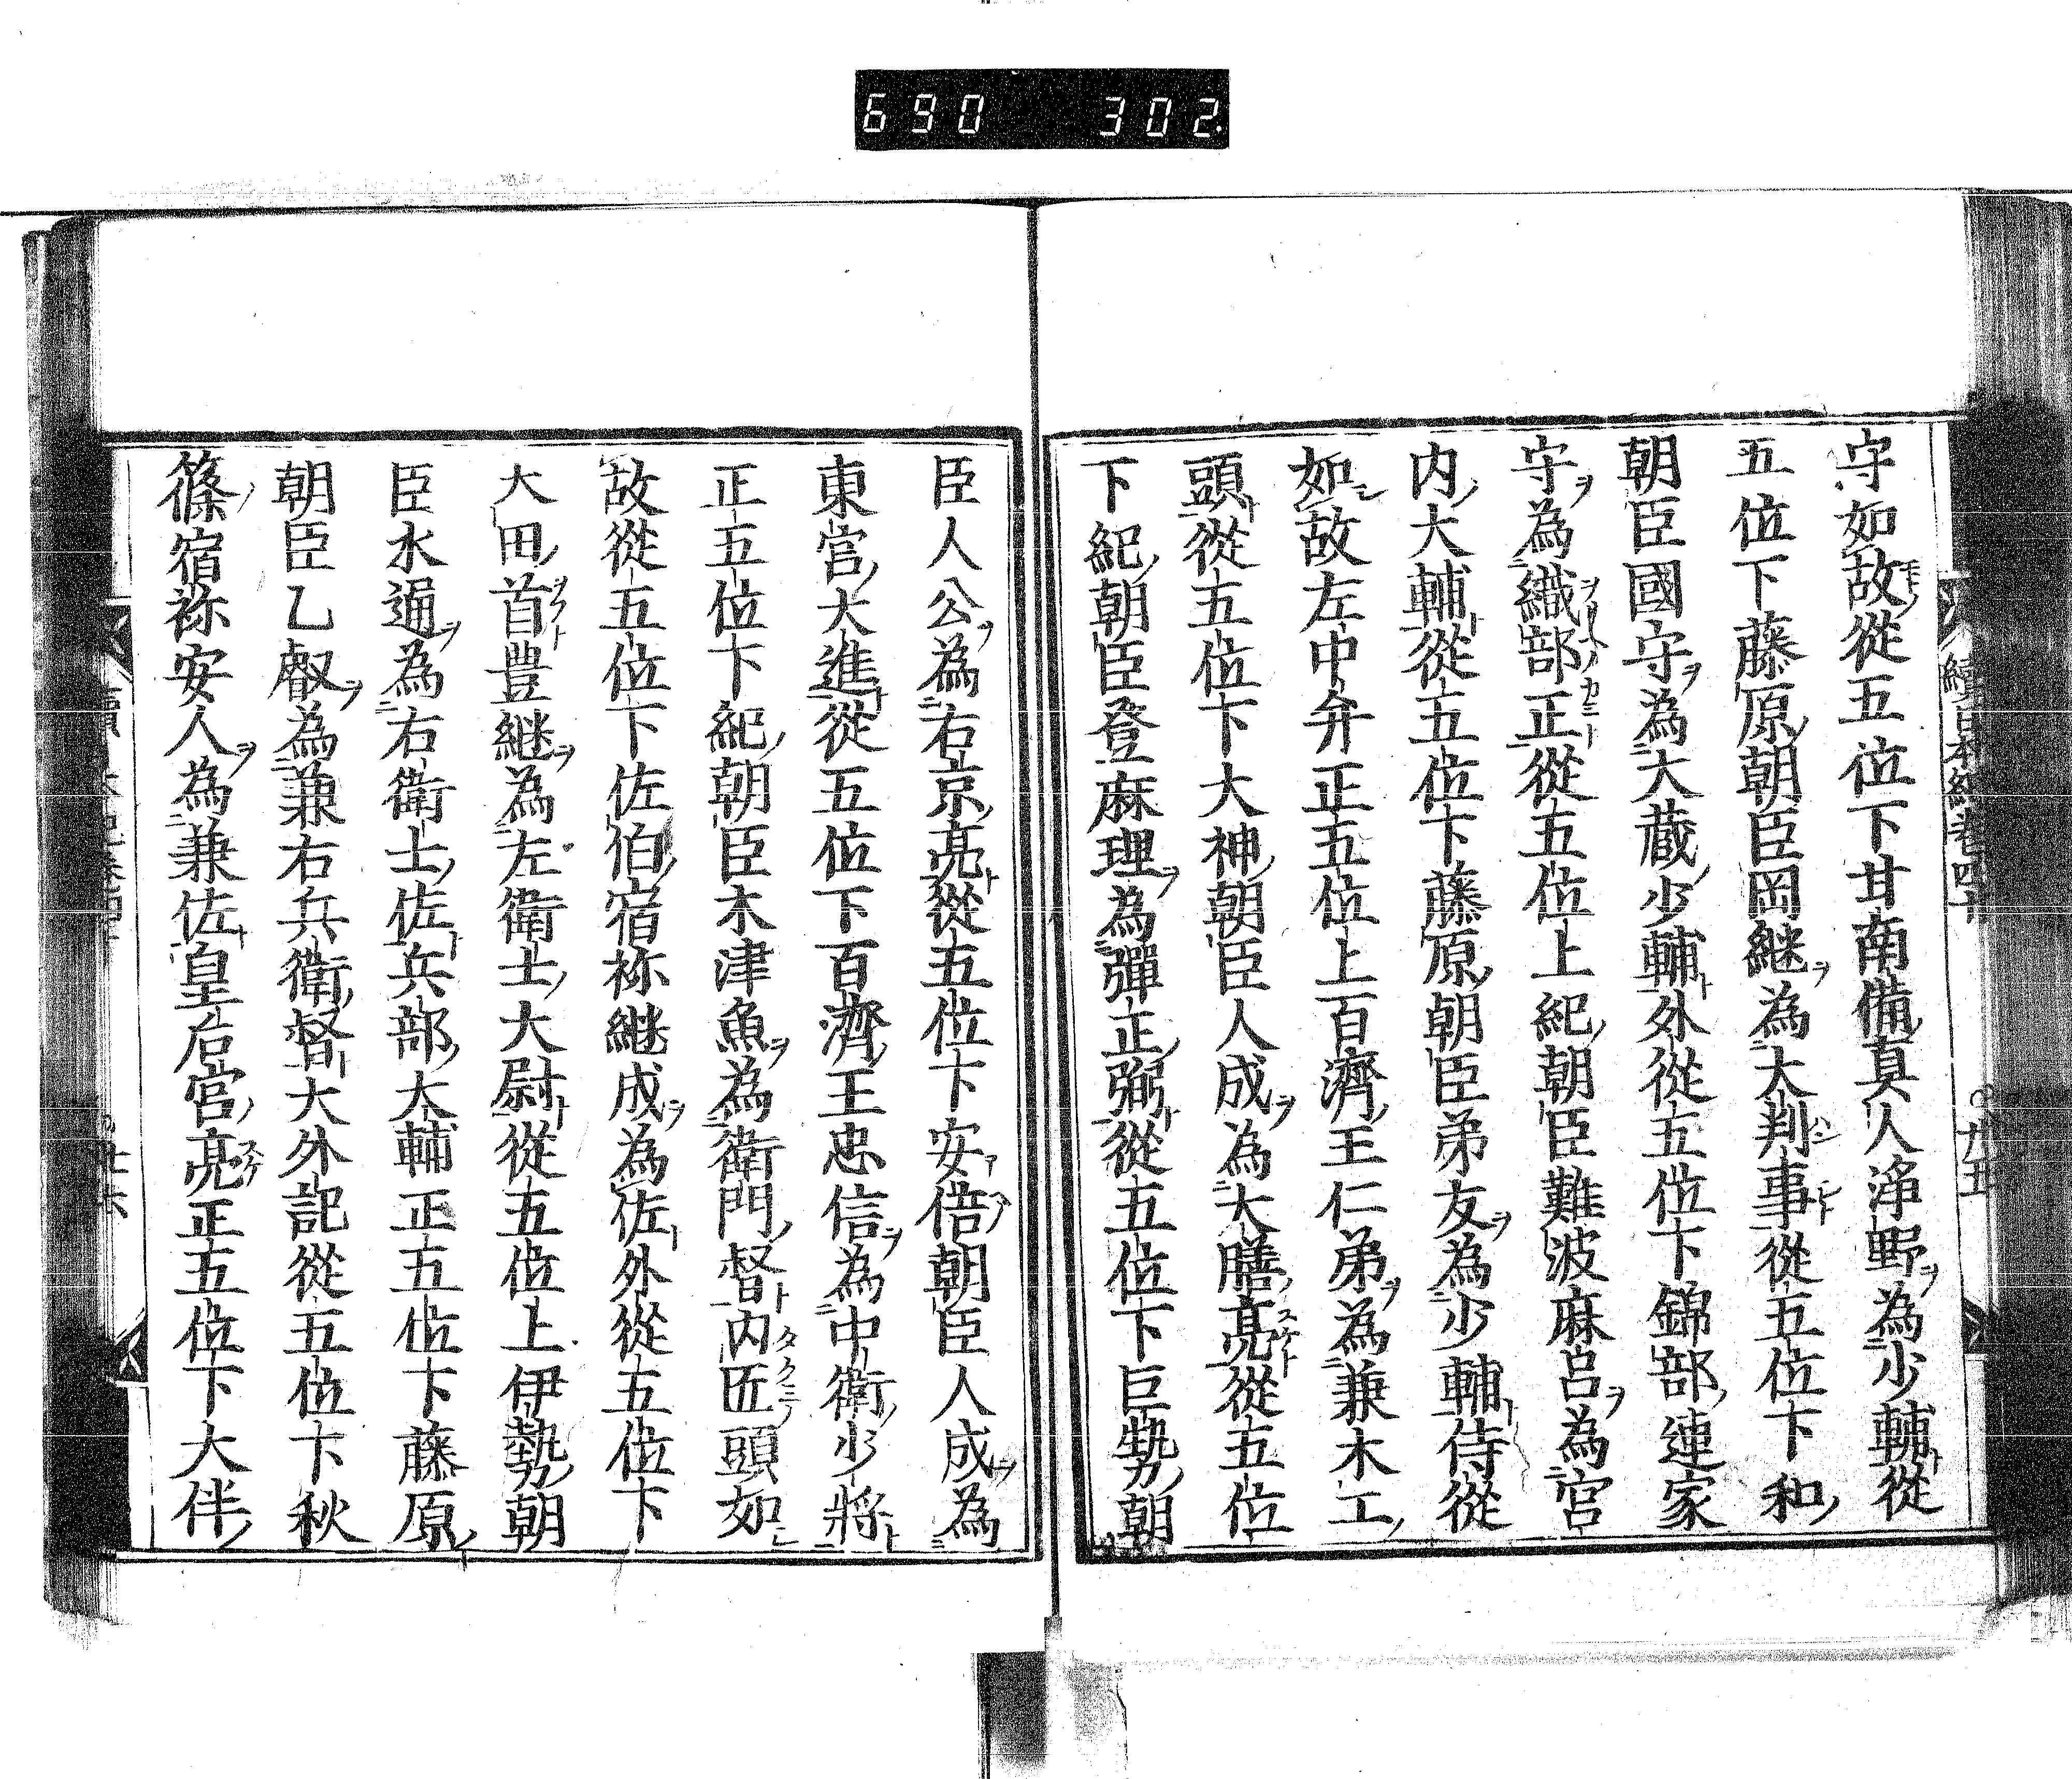 690 302
守如故從五位下甘南備真人浄野為少輔從
五位下藤原朝臣岡継為大判事從五位下和
朝臣國守為大蔵少輔外從五位下錦部連家
守為織部正從五位上紀朝臣難波麻呂為宮
内大輔從五位下藤原朝臣弟友為少輔侍從
如故左中弁正五位上百濟王仁弟為兼木工
頭從五位下大神朝臣人成為大膳亮從五位
下紀朝臣登麻理為彈正弼從五位下巨勢朝
臣人公為右京亮從五位下安倍朝臣人成為
東宮大進從五位下百濟王忠信為中衛少將
正五位下紀朝臣木津魚為衛門督内匠頭如
故從五位下佐伯宿祢継成為佐外從五位下
大田首豊継為左衛士大尉從五位上伊勢朝
臣水通為右衛士佐兵部大輔正五位下藤原
朝臣乙叡為兼右兵衛督大外記從五位下秋
篠宿祢安人為兼佐皇后宮亮正五位下大伴